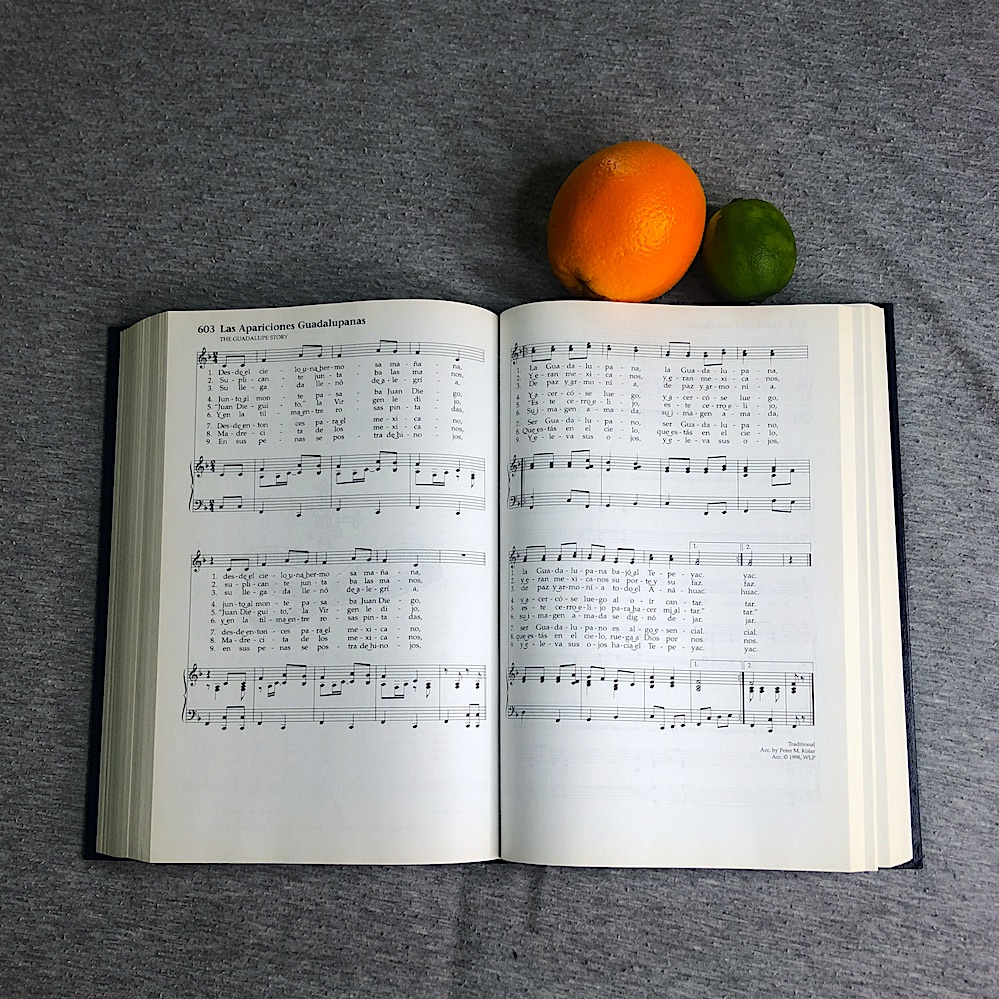 603 Las Apariciones Guadalupanas
THE GUADALUPE STORY
1. Des-de el cie - lo u-na her-mo - sa ma - ña - na,
2. Su - pli - can - te jun - ta - ba las ma - nos,
3. Su lle - ga - da lle - nó de a - le - grí - a,
4. Jun-to al mon - te pa - sa - ba Juan Die - go,
5. "Juan Die - gui - to," la Vir - gen le di - jo,
6. Y en la til - ma en-tre ro - sas pin - ta - das,
7. Des-de en-ton - ces pa-ra el me - xi - ca - no,
8. Ma - dre - ci - ta de los me - xi - ca - nos,
9. En sus pe - nas se pos - tra de hi - no - jos,
1. des-de el cie - lo u-na her-mo - sa ma-ña - na,
2. su - pli - can - te jun - ta - ba las ma - nos,
3. su lle - ga - da lle - nó de a-le - grí - a,
4. jun-to al mon - te pa - sa - ba Juan Die - go,
5. "Juan Die - gui - to," la Vir - gen le di - jo,
6. y en la til - ma en-tre ro - sas pin - ta - das,
7. des-de en-ton - ces pa-ra el me - xi - ca - no,
8. Ma - dre - ci - ta de los me - xi - ca - nos,
9. en sus pe - nas se pos - tra de hi-no - jos,
1. La Gua - da - lu - pa - na, la Gua - da - lu - pa - na,
2. Y e - ran me - xi - ca - nos, y e - ran me - xi - ca - nos,
3. De paz y ar - mo - ní - a, de paz y ar - mo - ní - a,
4. Y a - cer - có - se lue - go, y a - cer - có - se lue - go,
5. "Es - te ce - rro e - li - jo, es - te ce - rro e - li - jo,
6. Su i - ma - gen a - ma - da, su i - ma - gen a - ma - da,
7. Ser Gua - da - lu - pa - no, ser Gua - da - lu - pa - no,
8. Que es - tás en el cie - lo, que es - tás en el cie - lo,
9. Y e - le - va sus o - jos, y e - le - va sus o - jos,
1. 2.
1. la Gua - da - lu - pa - na ba-jó al Te - pe - yac. yac.
2. y e - ran me - xi - ca-nos su por - te y su faz. faz.
3. de paz y ar-mo-ní - a to-do el A - ná - huac. huac.
4. y a - cer-có - se lue-go al o - ír can - tar. tar.
5. es - te ce-rro e-li - jo pa-ra ha-cer mi al - tar." tar."
6. su i-ma - gen a-ma-da se dig - nó de - jar. jar.
7. ser Gua-da - lu - pa-no es al - go e - sen - cial. cial.
8. que es-tás en el cie-lo, rue-ga a Dios por nos. nos.
9. y e - le - va sus o-jos ha-cia el Te - pe - yac. yac.
1. 2.
Traditional
Acc. by Peter M. Kolar
Acc. © 1998, WLP